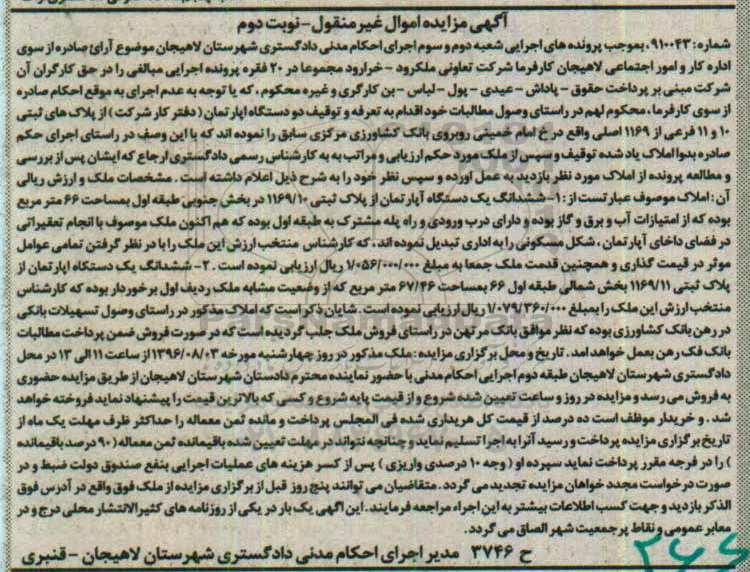 آگهی مزایده اموال غیر منقول - نوبت دوم
شماره: ۹۱۰۰۴۳، بموجب پرونده های اجرایی شعبه دوم و سوم اجرای احکام مدنی دادگستری شهرستان لاهیجان موضوع آرائ صادره از سوی
اداره کار و امور اجتماعی لاهیجان کارفرما شرکت تعاونی ملکرود - خرارود مجموعا در ۲۰ فقره پرونده اجرایی مبالغی را در حق کارگران آن
شرکت مبنی بر پرداخت حقوق - پاداش - عیدی - پول - لباس - بن کارگری و غیره محکوم، که یا توجه به عدم اجرای به موقع احکام صادره
از سوی کارفرما، محکوم لهم در راستای وصول مطالبات خود اقدام به تعرفه و توقیف دو دستگاه اپارتمان (دفتر کار شرکت) از پلاک های ثبتی
۱۰ و ۱۱ فرعی از ۱۱۶۹ اصلی واقع در خ امام خمینی روبروی بانک کشاورزی مرکزی سابق را نموده اند که با این وصف در راستای اجرای حکم
صادره بدوا املاک یاد شده توقیف و سپس از ملک مورد حکم ارزیابی و مراتب به به کارشناس رسمی دادگستری ارجاع که ایشان پس از بررسی
و مطالعه پرونده از املاک مورد نظر بازدید به عمل اورده و سپس نظر خود را به شرح ذیل اعلام داشته است. مشخصات ملک و ارزش ریالی
آن: املاک موصوف عبارتست از: ۱- ششدانگ یک دستگاه آپارتمان از پلاک ثبتی ۱۱۶۹/۱۰ در بخش جنوبی طبقه اول بمساحت ۶۶ متر مربع
بوده که از امتیازات آب و برق و گاز بوده و دارای درب ورودی و راه پله مشترک به طبقه اول بوده که هم اکنون ملک موصوف با انجام تعقیراتی
در فضای داخای آپارتمان، شکل مسکونی را به اداری تبدیل نموده اند، که کارشناس منتخب ارزش این ملک را با در نظر گرفتن تمامی عوامل
موثر در قیمت گذاری و همچنین قدمت ملک جمعا به مبلغ ۱/۰۵۶/۰۰۰/۰۰۰ ریال ارزیابی نموده است. ۲- ششدانگ یک دستگاه اپارتمان از
پلاک ثبتی ۱۱۶۹/۱۱ بخش شمالی طبقه اول ۶۶ بمساحت ۶۷/۴۶ متر مربع که از وضعیت مشابه ملک ردیف اول برخوردار بوده که کارشناس
منتخب ارزش این ملک را بمبلغ ۱/۰۷۹/۳۶۰/۰۰۰ ریال ارزیابی نموده است. شایان ذکر است که املاک مذکور در راستای وصول تسهیلات بانکی
در رهن بانک کشاورزی بوده که نظر موافق بانک مرتهن در راستای فروش ملک جلب گردیده است که در صورت فروش ضمن پرداخت مطالبات
بانک فک رهن بعمل خواهد امد. تاریخ و محل برگزاری مزایده: ملک مذکور در روز چهارشنبه مورخه ۱۳۹۶/۰۸/۰۳ از ساعت ۱۱ الی ۱۳ در محل
دادگستری شهرستان لاهیجان طبقه دوم اجرایی احکام مدنی با حضور نماینده محترم دادستان شهرستان لاهیجان از طریق مزایده حضوری
به فروش می رسد و مزایده در روز و ساعت تعیین شده شروع و از قیمت پایه شروع و کسی که بالاترین قیمت را پیشنهاد نماید فروخته خواهد
شد. و خریدار موظف است ده درصد از قیمت کل هریداری شده فی المجلس پرداخت و مانده ثمن معماله را حداکثر ظرف مهلت یک ماه از
تاریخ برگزاری مزایده پرداخت و رسید آنرا به اجرا تسلیم نماید و چنانچه نتواند در مهلت تعیین شده باقیمانده ثمن معماله (۹۰ درصد باقیمانده
) را در فرجه مقرر پرداخت نماید سپرده او (وجه ۱۰ درصدی واریزی) پس از کسر هزینه های عملیات اجرایی بنفع صندوق دولت ضبط و در
صورت درخواست مجدد خواهان مزایده تجدید می گردد. متقاضیان می توانند پنج روز قبل از برگزاری مزایده از ملک فوق واقع در آدرس فوق
الذکر بازدید و جهت کسب اطلاعات بیشتر به این اجراء مراجعه فرمایند. این آگهی یک بار در یکی از روزنامه های کثیرالانتشار محلی درج و در
معابر عمومی و نقاط پر جمعیت شهر الصاق می گردد.
ح ۳۷۴۶ مدیر اجرای احکام مدنی دادگستری شهرستان لاهیجان - قنبری